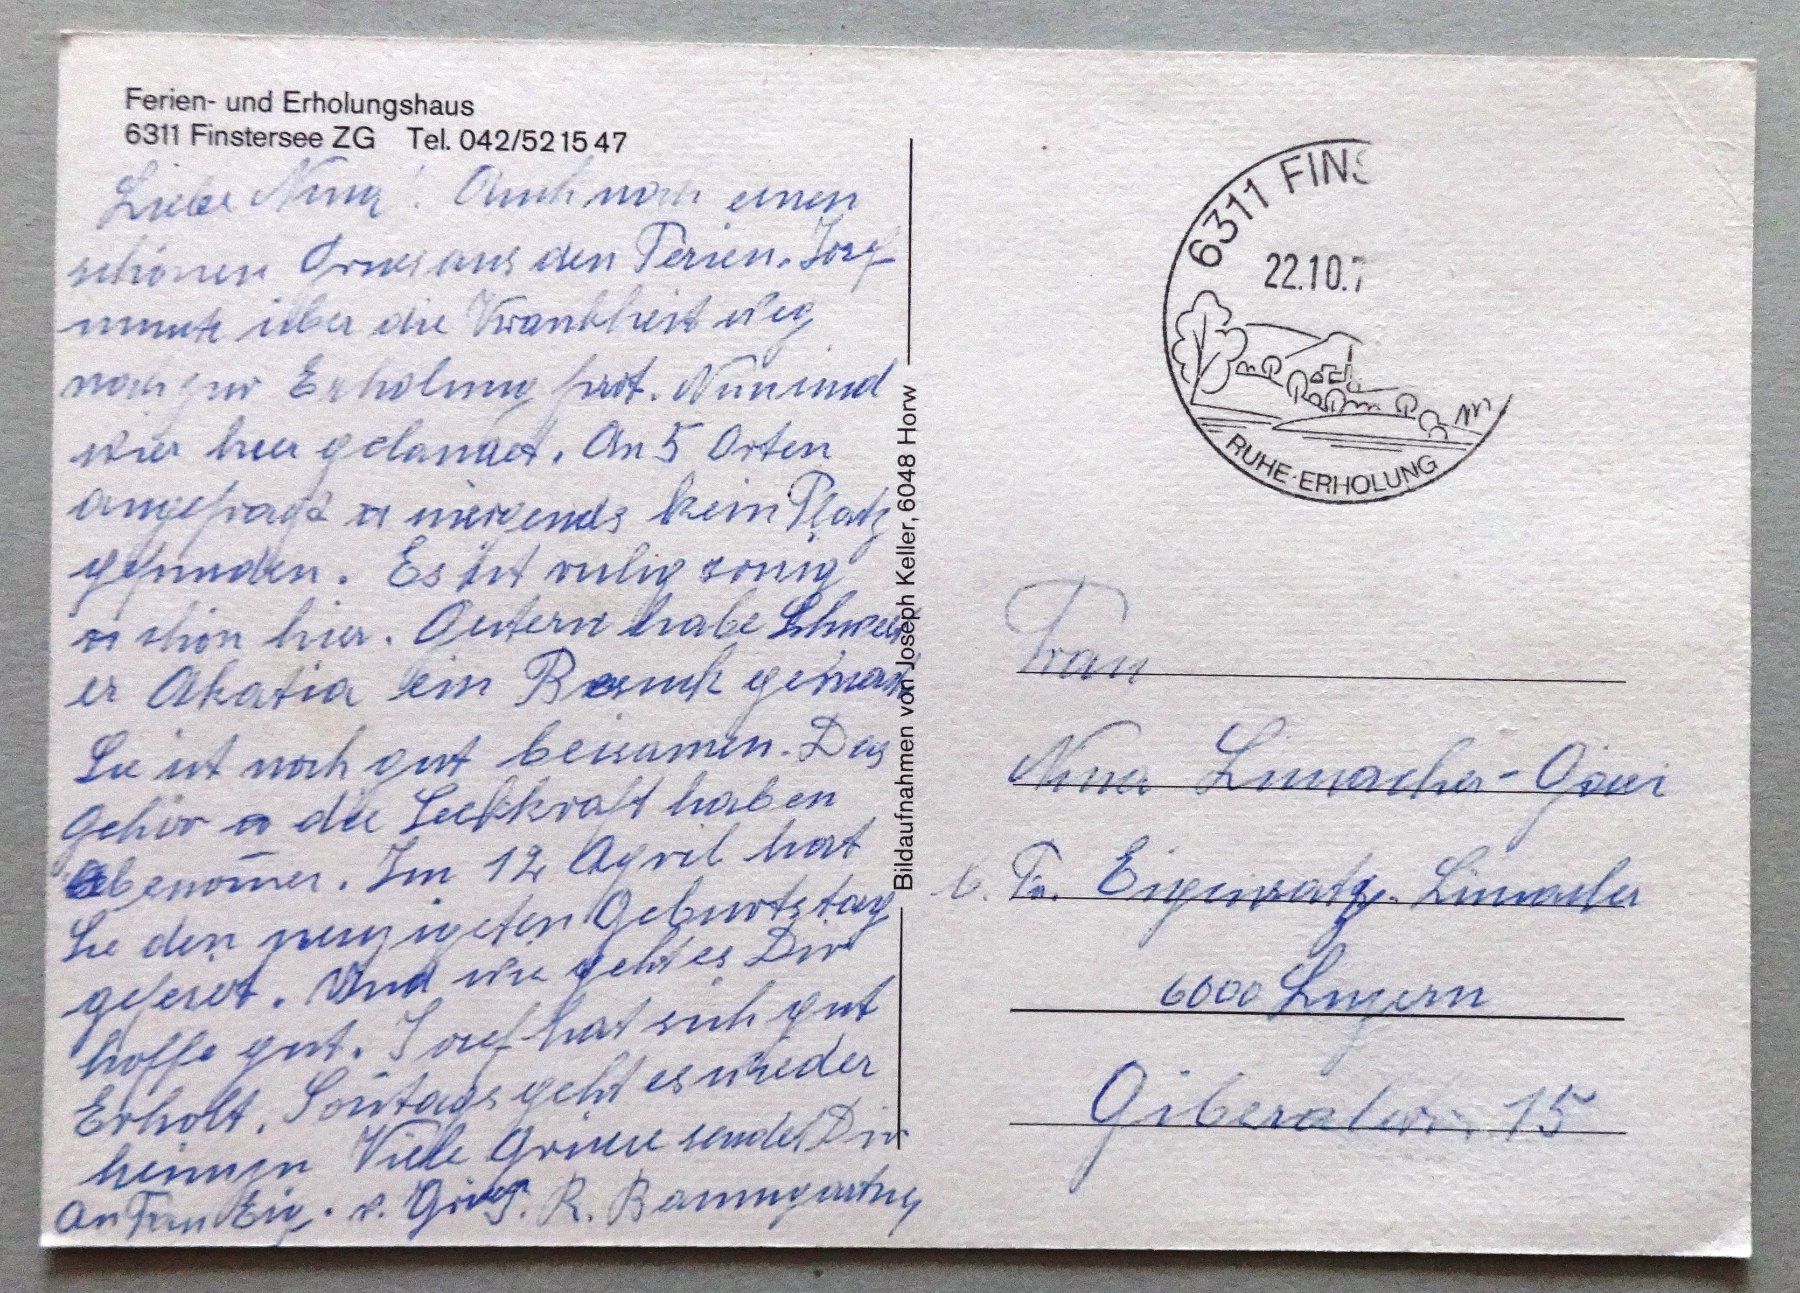 Ferien- und Erholungshaus
6311 Finstersee ZG Tel. 042/52 15 47
Liebe Nina! Auch noch einen
schönen Grus aus den Ferien. Josef
muste über die Krankheit weg
noch zur Erholung fort. Nun sind
wier hier gelandet. An 5 Orten
angefragt u niergends kein Platz
gefunden. Es ist ruhig sonig
u schön hier. Gestern habe Schwest
er Akatia ein Besuch gemacht
Sie ist noch gut beisamen. Das
Gehör u die Sehkraft haben
abgenom̄en. Im 12 April hat
Sie den neunzigsten Geburtstag
gefeiert. Und wie geht es Dir
hoffe gut. Josef hat sich gut
Erholt. Son̄tags geht es wieder
heimzu Viele Grüsse sendet Dir
An Frau Eig. v. R. Baumgartner
Bildaufnahmen von Joseph Keller, 6048 Horw
6311 FINS
22.10.7
RUHE·ERHOLUNG
Frau
Nina Limacher-
b. Fr. Eigensatz-Limacher
6000 Luzern
15